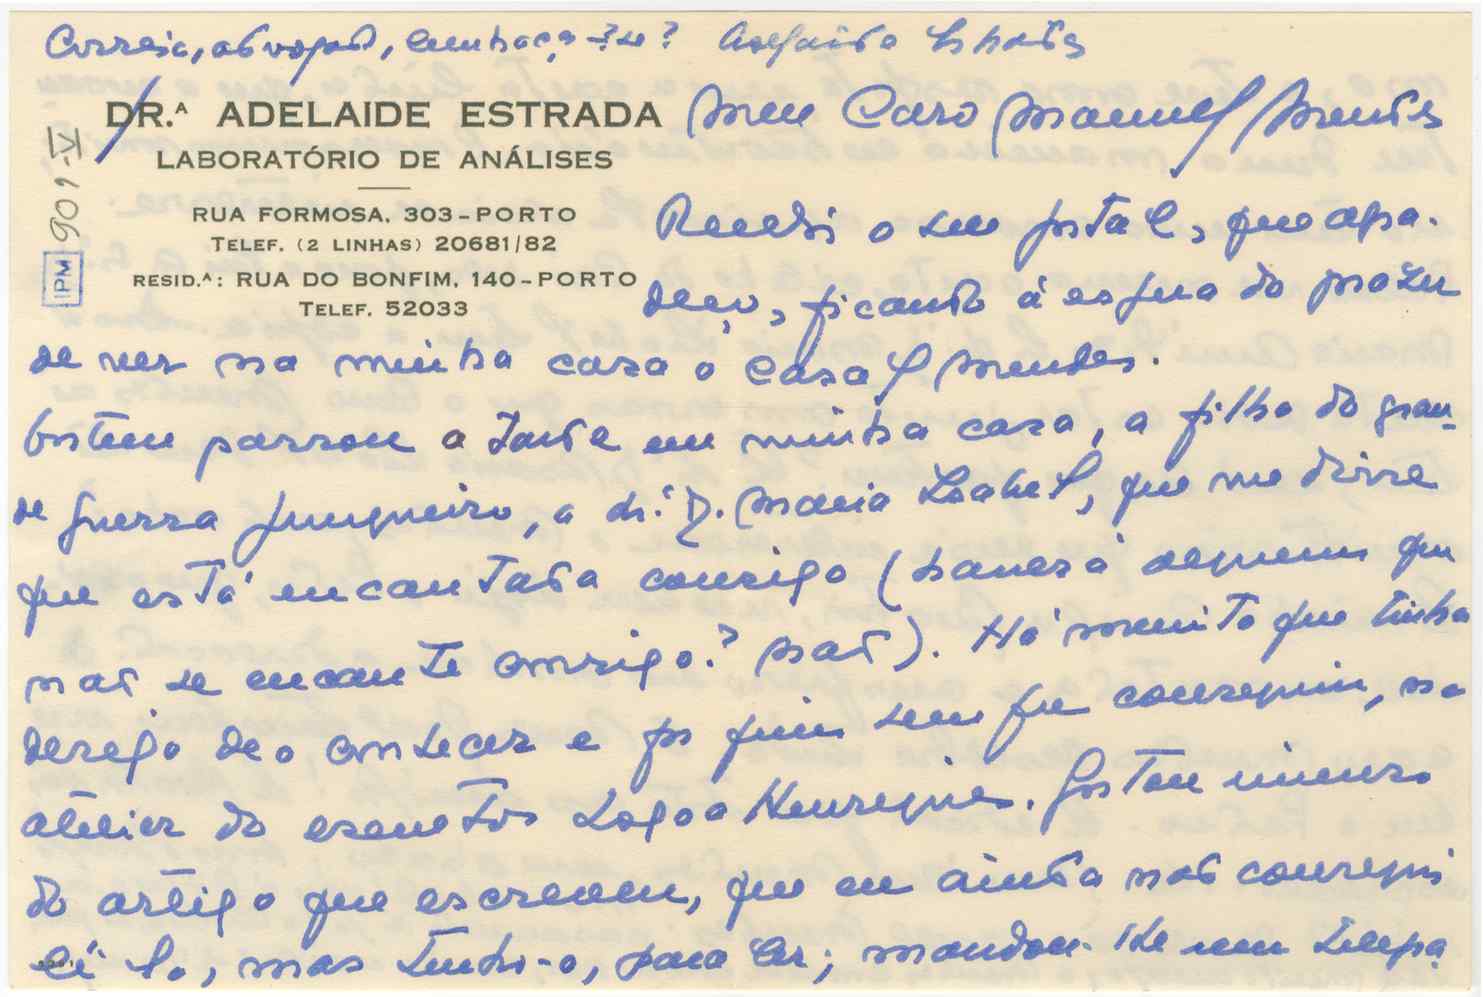 Adelaide Estrada
DR.ᴬ ADELAIDE ESTRADA
LABORATÓRIO DE ANÁLISES
RUA FORMOSA, 303 - PORTO
TELEF. (2 LINHAS) 20681/82
RESID.ᴬ: RUA DO BONFIM, 140 - PORTO
TELEF. 52033
901-IV
IPM
Meu Caro Manuel Mendes
Recebi o seu postal, que agra-
deço, ficando à espera do prazer
de ver na minha casa o casal Mendes.
Ontem passou a tarde em minha casa, a filha do gran-
de Guerra Junqueiro, a Sr.ª D. Maria Isabel, que me disse
que está encantada consigo (haverá alguem que
não se encante consigo? Não). Há muito que tinha
desejo de o conhecer e por fim sempre conseguiu, no
atelier do escultor Lagoa Henriques. Gostou imenso
do artigo que escreveu, que eu ainda não consegui
lê-lo, mas tenho-o, para ler; mandou-lhe um